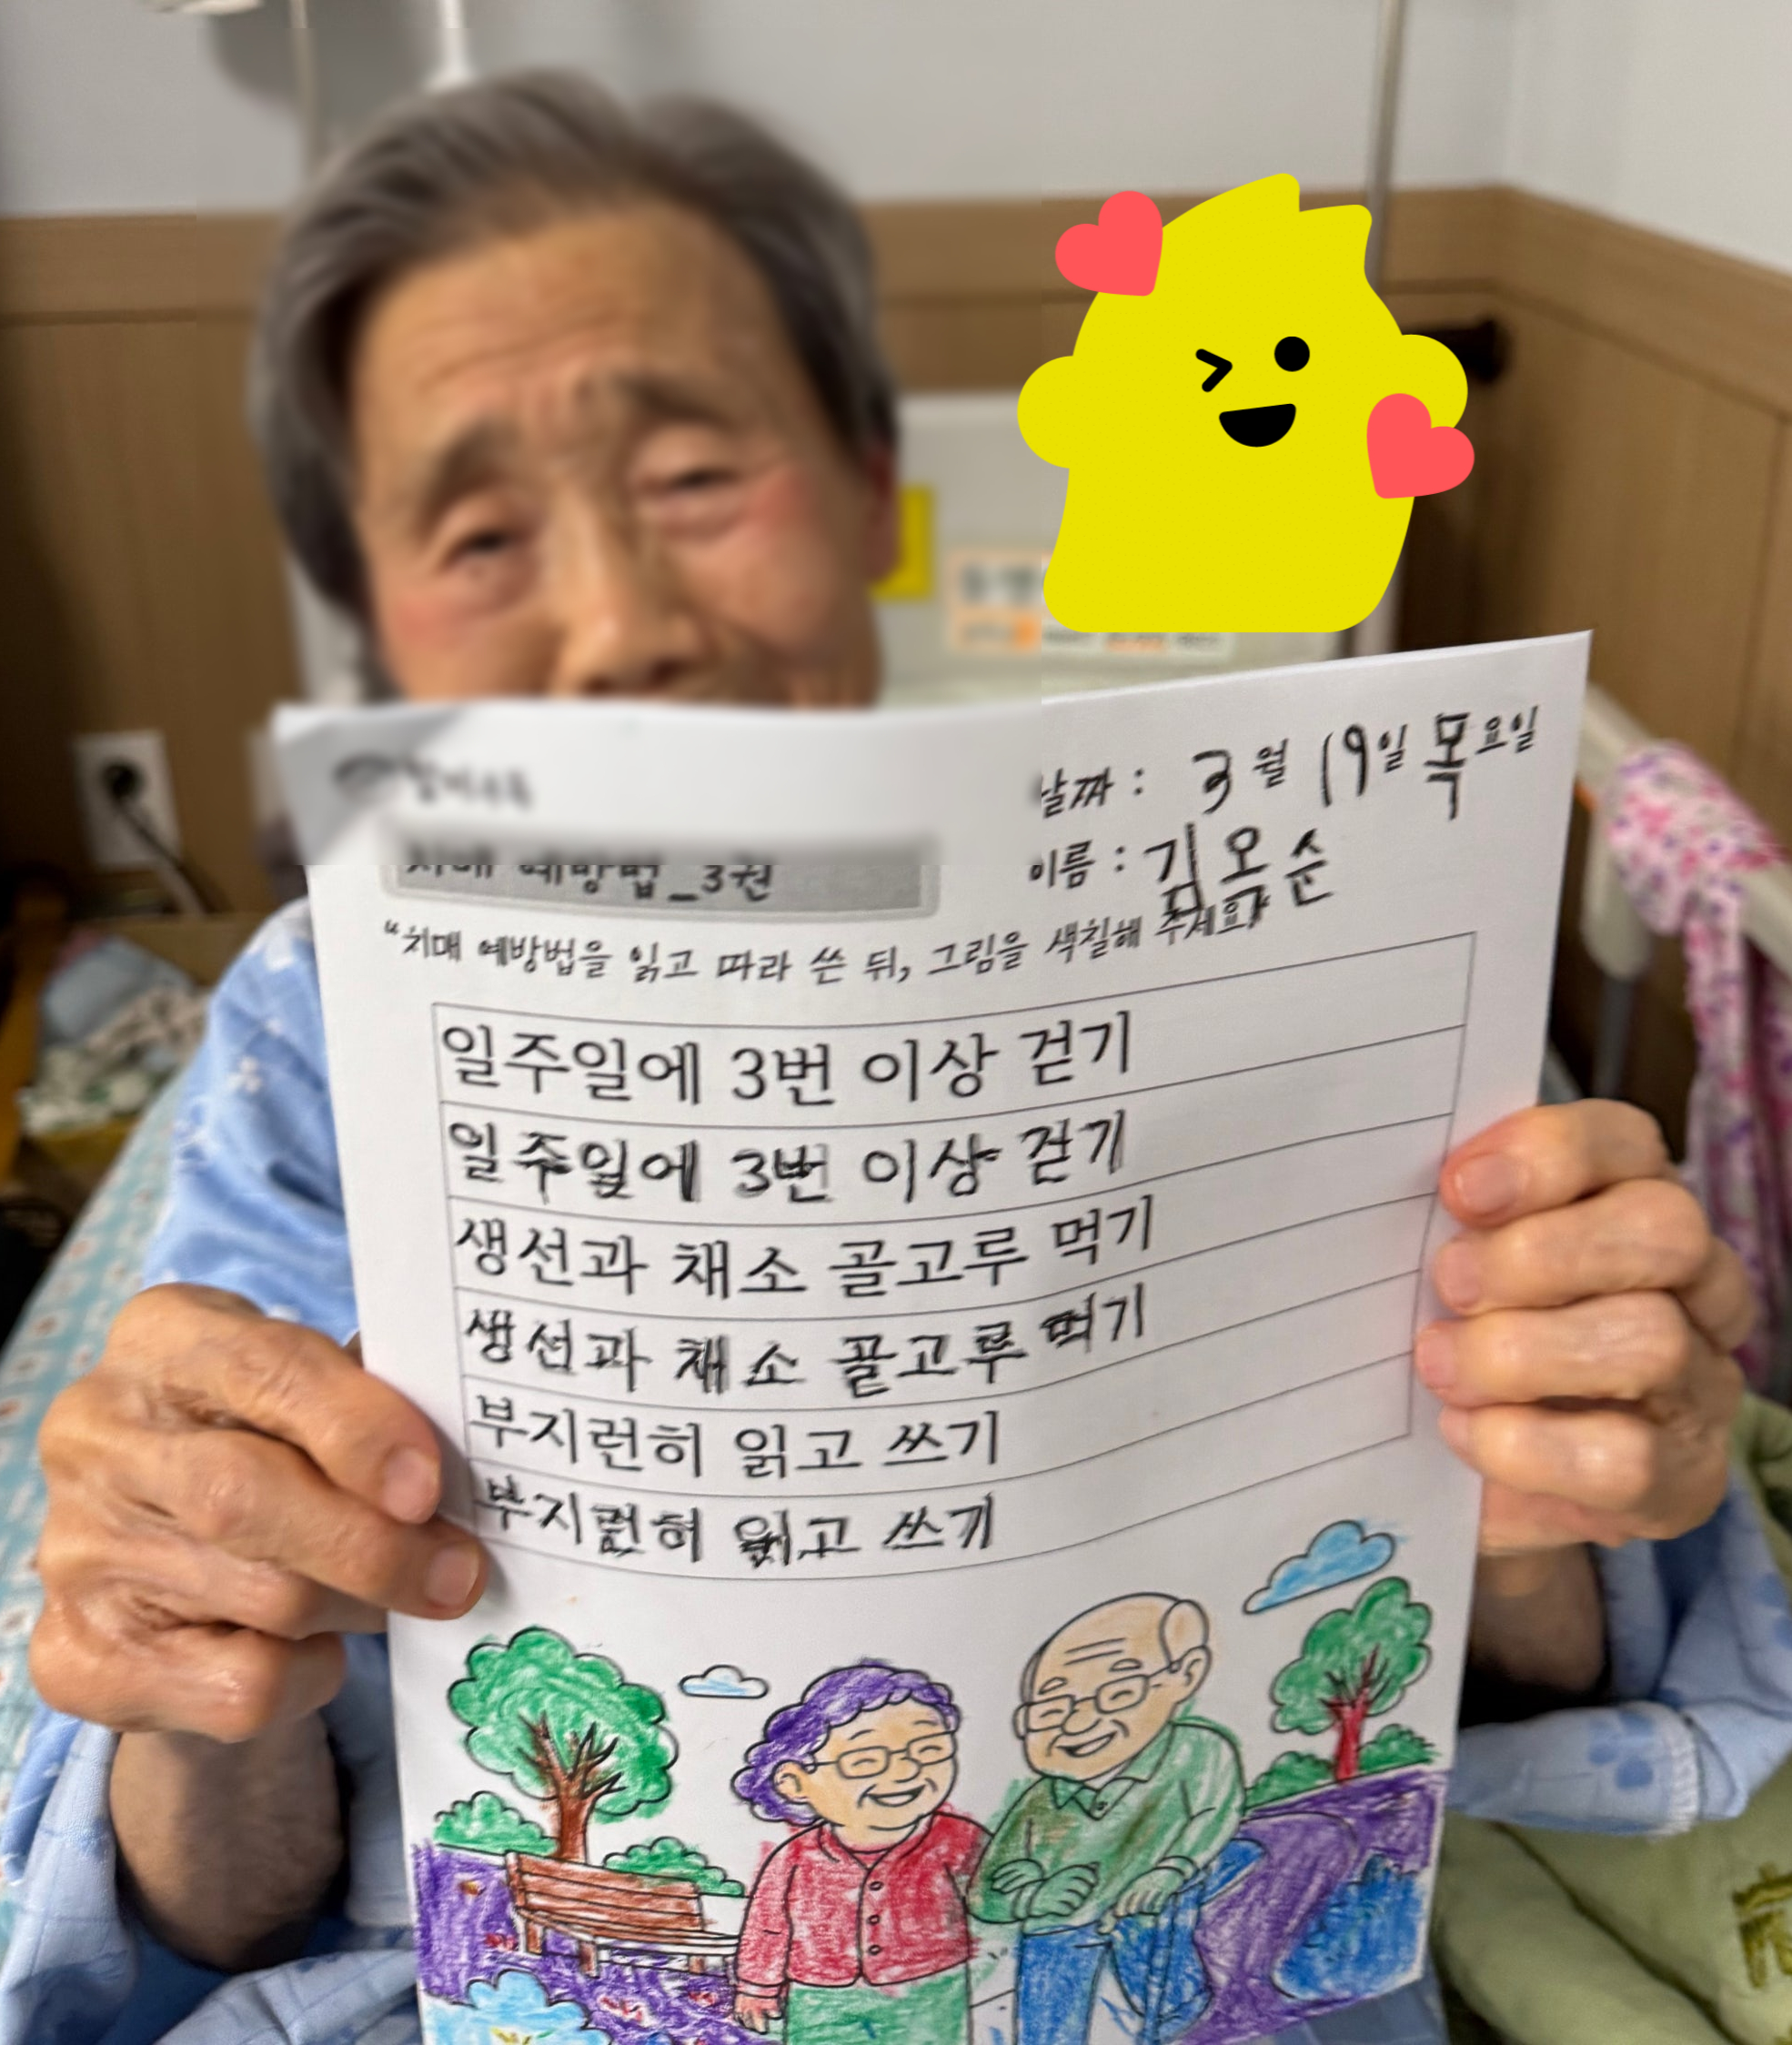 날짜 : 3월 19일 목요일
이름 : 김오순
치매 예방법_3권
"치매 예방법을 읽고 따라 쓴 뒤, 그림을 색칠해 주세요"
일주일에 3번 이상 걷기
일주일에 3번 이상 걷기
생선과 채소 골고루 먹기
생선과 채소 골고루 먹기
부지런히 읽고 쓰기
부지런히 읽고 쓰기